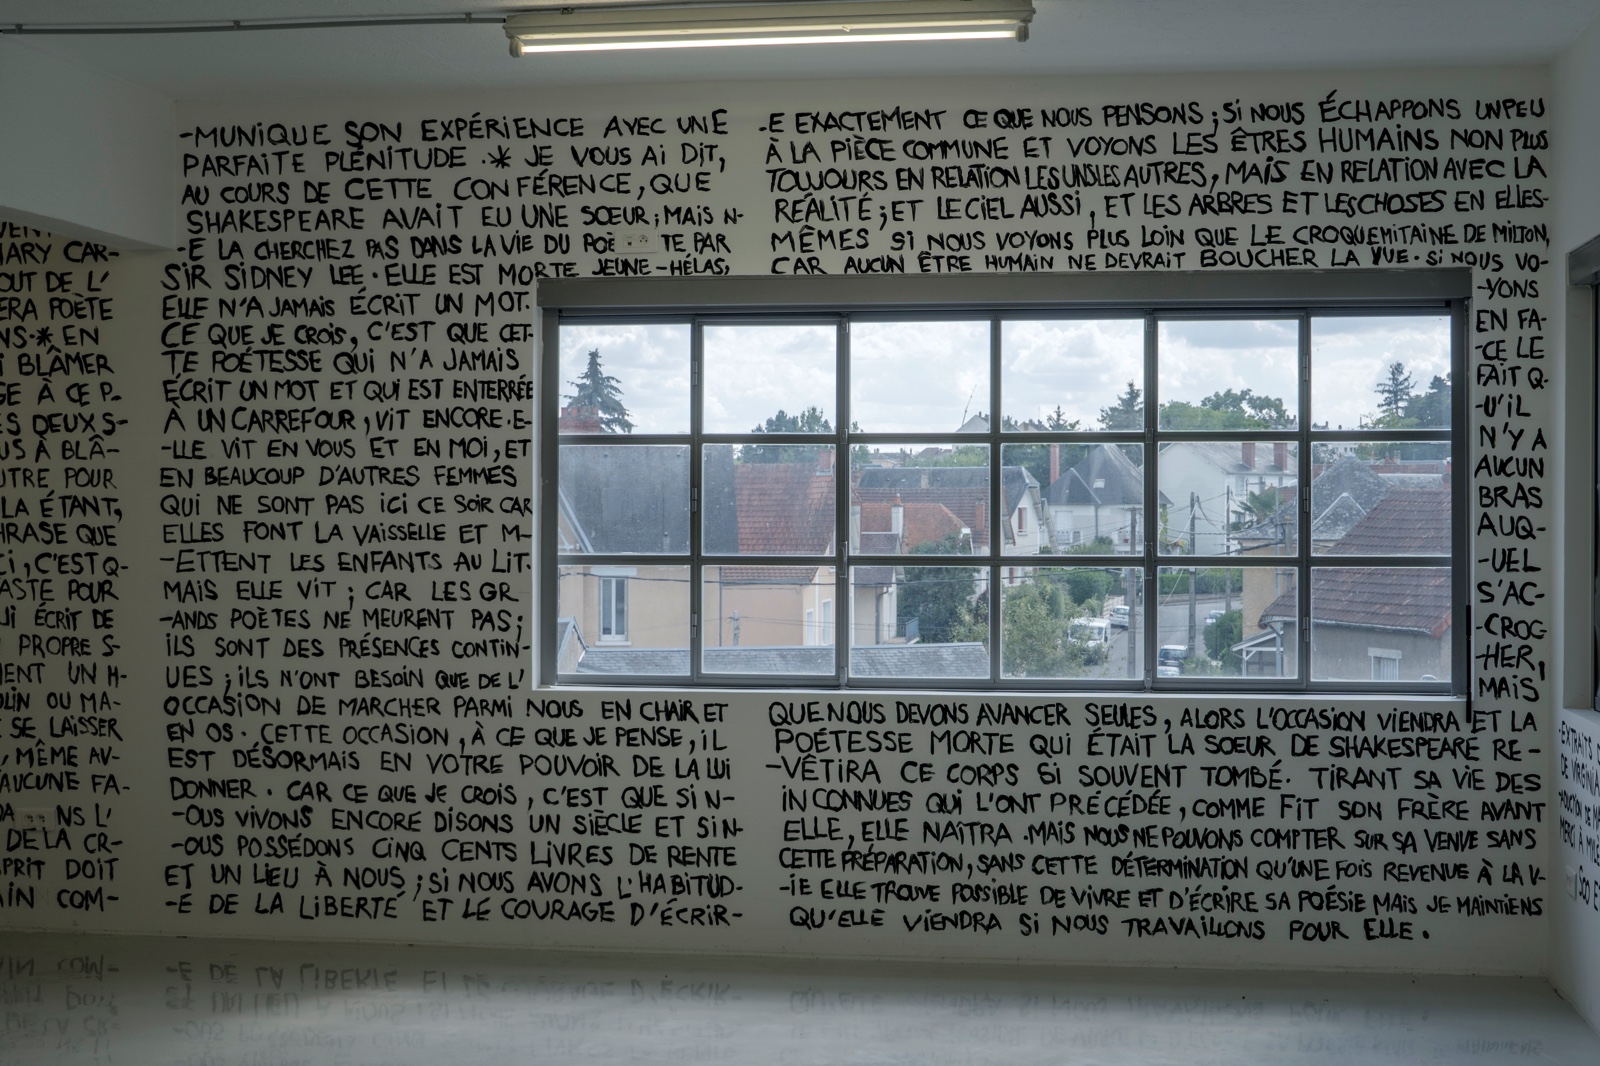 MARY CAR-
OUT DE L'
ERA POÈTE
NS.* EN
BLÂMER
GE À CE P-
ES DEUX S-
US À BLÂ-
UTRE POUR
LA ÉTANT,
HRASE QUE
CI, C'EST Q-
ASTE POUR
UI ÉCRIT DE
PROPRE S-
MENT UN H-
ULIN OU MA-
SE LAISSER
, MÊME AV-
'AUCUNE FA-
DA NS L'
DE LA CR-
SPRIT DOIT
AIN COM-
-MUNIQUE SON EXPÉRIENCE AVEC UNE
PARFAITE PLÉNITUDE .* JE VOUS AI DIT,
AU COURS DE CETTE CONFÉRENCE, QUE
SHAKESPEARE AVAIT EU UNE SŒUR ; MAIS N-
-E LA CHERCHEZ PAS DANS LA VIE DU POÈ TE PAR
SIR SIDNEY LEE. ELLE EST MORTE JEUNE - HÉLAS,
ELLE N'A JAMAIS ÉCRIT UN MOT.
CE QUE JE CROIS, C'EST QUE CET-
-TE POÉTESSE QUI N'A JAMAIS
ÉCRIT UN MOT ET QUI EST ENTERRÉE
À UN CARREFOUR, VIT ENCORE. E-
-LLE VIT EN VOUS ET EN MOI, ET
EN BEAUCOUP D'AUTRES FEMMES
QUI NE SONT PAS ICI CE SOIR CAR
ELLES FONT LA VAISSELLE ET M-
-ETTENT LES ENFANTS AU LIT.
MAIS ELLE VIT ; CAR LES GR
-ANDS POÈTES NE MEURENT PAS ;
ILS SONT DES PRÉSENCES CONTIN-
UES ; ILS N'ONT BESOIN QUE DE L'
OCCASION DE MARCHER PARMI NOUS EN CHAIR ET
EN OS. CETTE OCCASION, À CE QUE JE PENSE, IL
EST DÉSORMAIS EN VOTRE POUVOIR DE LA LUI
DONNER. CAR CE QUE JE CROIS, C'EST QUE SI N-
-OUS VIVONS ENCORE DISONS UN SIÈCLE ET SI N-
-OUS POSSÉDONS CINQ CENTS LIVRES DE RENTE
ET UN LIEU À NOUS ; SI NOUS AVONS L'HABITUD-
-E DE LA LIBERTÉ ET LE COURAGE D'ÉCRIR-
-E EXACTEMENT CE QUE NOUS PENSONS ; SI NOUS ÉCHAPPONS UN PEU
À LA PIÈCE COMMUNE ET VOYONS LES ÊTRES HUMAINS NON PLUS
TOUJOURS EN RELATION LES UNS LES AUTRES, MAIS EN RELATION AVEC LA
RÉALITÉ ; ET LE CIEL AUSSI, ET LES ARBRES ET LES CHOSES EN ELLES-
MÊMES SI NOUS VOYONS PLUS LOIN QUE LE CROQUEMITAINE DE MILTON,
CAR AUCUN ÊTRE HUMAIN NE DEVRAIT BOUCHER LA VUE. SI NOUS VO-
-YONS
EN FA-
-CE LE
FAIT Q-
-U'IL
N'Y A
AUCUN
BRAS
AUQ-
-UEL
S'AC-
-CROC-
-HER,
MAIS
QUE NOUS DEVONS AVANCER SEULES, ALORS L'OCCASION VIENDRA ET LA
POÉTESSE MORTE QUI ÉTAIT LA SŒUR DE SHAKESPEARE RE-
-VÊTIRA CE CORPS SI SOUVENT TOMBÉ. TIRANT SA VIE DES
INCONNUES QUI L'ONT PRÉCÉDÉE, COMME FIT SON FRÈRE AVANT
ELLE, ELLE NAÎTRA. MAIS NOUS NE POUVONS COMPTER SUR SA VENUE SANS
CETTE PRÉPARATION, SANS CETTE DÉTERMINATION QU'UNE FOIS REVENUE À LA V-
-IE ELLE TROUVE POSSIBLE DE VIVRE ET D'ÉCRIRE SA POÉSIE MAIS JE MAINTIENS
QU'ELLE VIENDRA SI NOUS TRAVAILLONS POUR ELLE.
EXTRAITS D
DE VIRGINIA
DUCTION DE MA
MERCI À